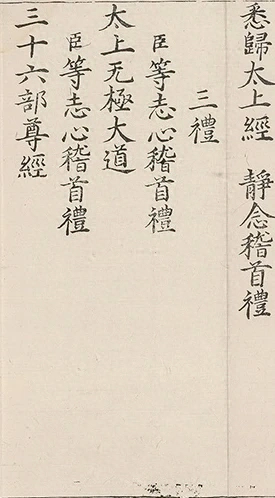 悉歸太上經　靜念稽首禮
三禮
臣等志心稽首禮
太上无極大道
臣等志心稽首禮
三十六部尊經